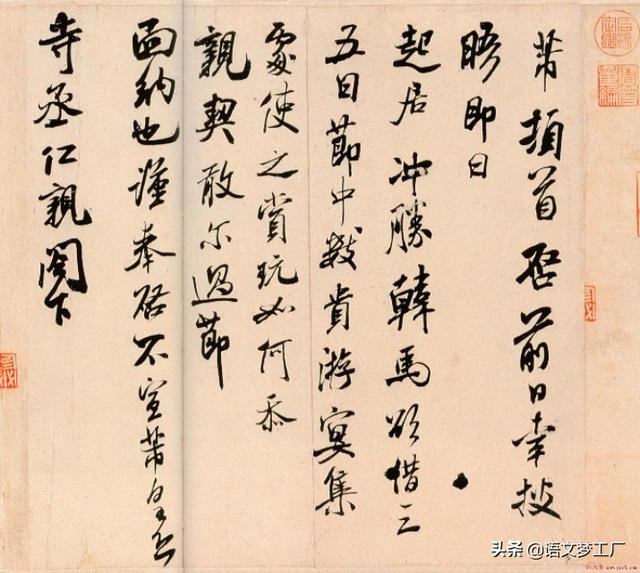 芾頓首啓前日幸披
晤即日
起居冲勝韓馬欲借三
五日節中數貴游宴集
處使之賞玩如何忝
親契敢尔過節
面納也謹奉啓不宣芾皇恐
寺丞仁親閣下
头条 @语文梦工厂